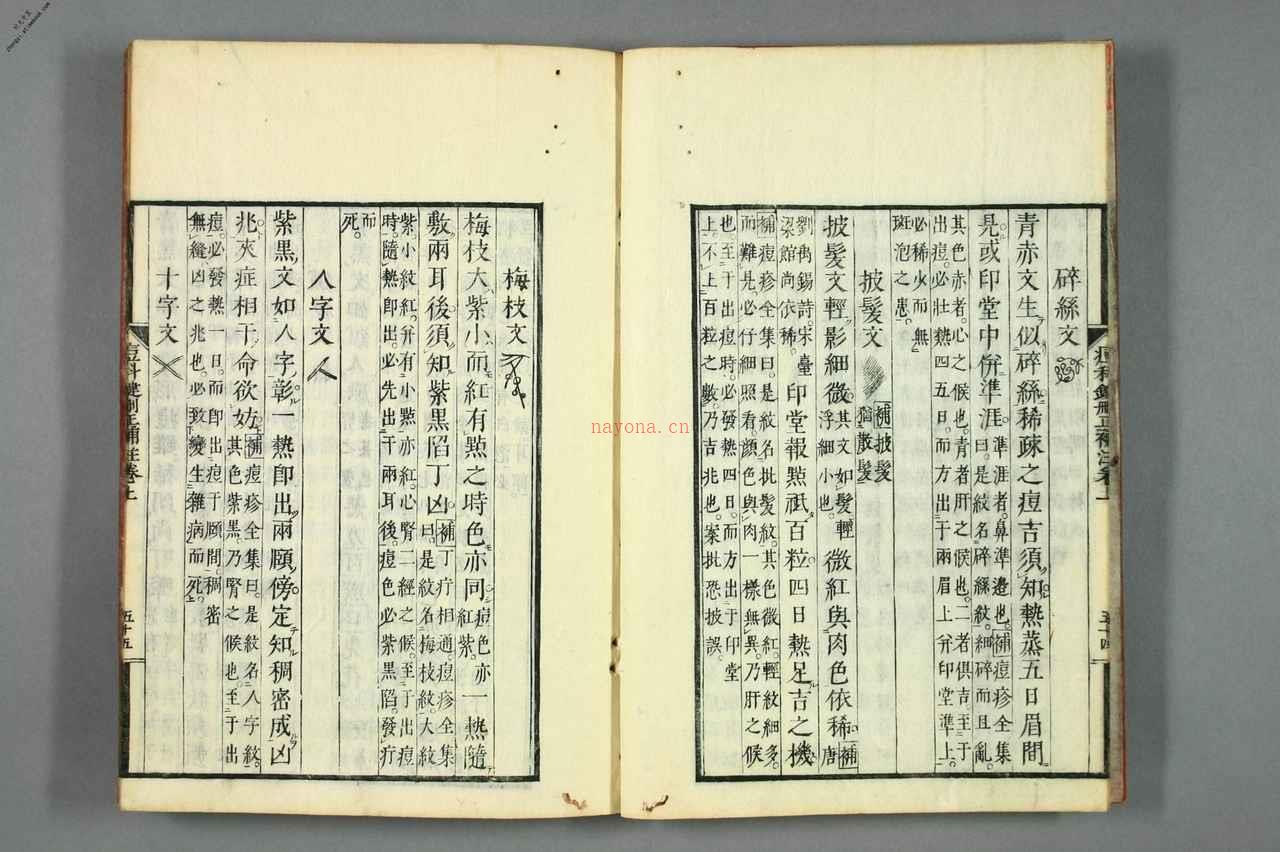 碎絲文
青赤文生似碎絲稀疎之痘吉須知熱蒸五日眉間
見或印堂中併準涯準涯者鼻準邉也補痘疹全集
曰是紋名碎絲紋細碎而且亂
其色赤者心之候也青者肝之候也二者俱吉至于
出痘必壯熱四五日而方出于兩眉上并印堂準上
必稀少而無
斑泡之患
披髮文 補披髮
猶散髮
披髮文輕影細微其文如髮輕
浮細小也微紅與肉色依稀補
唐
劉禹錫詩宋臺
梁館尚依稀印堂報點祗百粒四日熱足吉之機
補痘疹全集曰是紋名批髮紋其色微紅輕紋細多
而難見必仔細照看顏色與肉一樣無異乃肝之候
也至于出痘時必發熱四日而方出于印堂
上不上百粒之數乃吉兆也案批恐披誤
五十四
梅枝文
梅枝大紫小而紅有點之時色亦同痘色亦一
紅紫熱隨
敷兩耳後須知紫黑陷丁凶補丁疔相通痘疹全集
曰是紋名梅枝紋大紋
紫小紋紅并有小點亦紅心腎二經之候至于出痘
時隨熱即出必先出于兩耳後痘色必紫黑陷發疔
而
死
人字文
紫黑文如人字彰一熱即出兩顋傍定知稠密成凶
兆夾症相干命欲妨補痘疹全集曰是紋名人字紋
其色紫黑乃腎之候也至于出
痘必發熱一日而即出痘于顋間稠密
無縫凶之兆也必致變生雜病而死
十字文
痘科鍵刪正補註卷上
五十五
nayona.cn